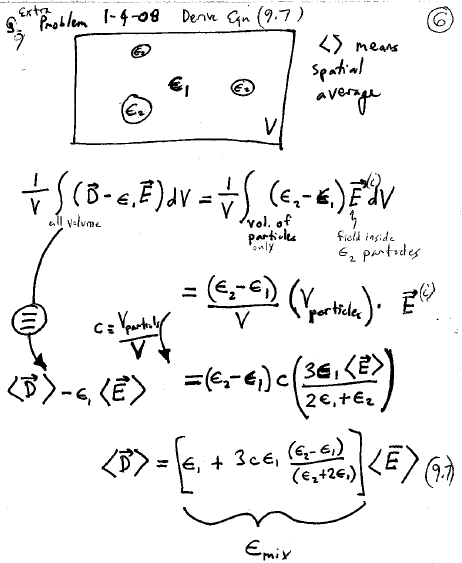 Extra Problem 1-4-08 Derive Eqn (9.7) ⑥
ϵ₂ ϵ₁ ϵ₂ ϵ₂ V
<> means
spatial
average
1/V ∫ (D⃗ - ϵ₁E⃗) dV = 1/V ∫ (ϵ₂-ϵ₁) E⃗⁽ⁱ⁾ dV
all volume
vol. of
particles
only
field inside
ϵ₂ particles
= (ϵ₂-ϵ₁)/V (V particles) · E⃗⁽ⁱ⁾
c = V particles / V
≡
⟨D⃗⟩ - ϵ₁⟨E⃗⟩ = (ϵ₂-ϵ₁) c (3ϵ₁⟨E⃗⟩ / 2ϵ₁+ϵ₂)
⟨D⃗⟩ = [ϵ₁ + 3cϵ₁ (ϵ₂-ϵ₁)/(ϵ₂+2ϵ₁)] ⟨E⃗⟩ (9.7)
ϵ mix